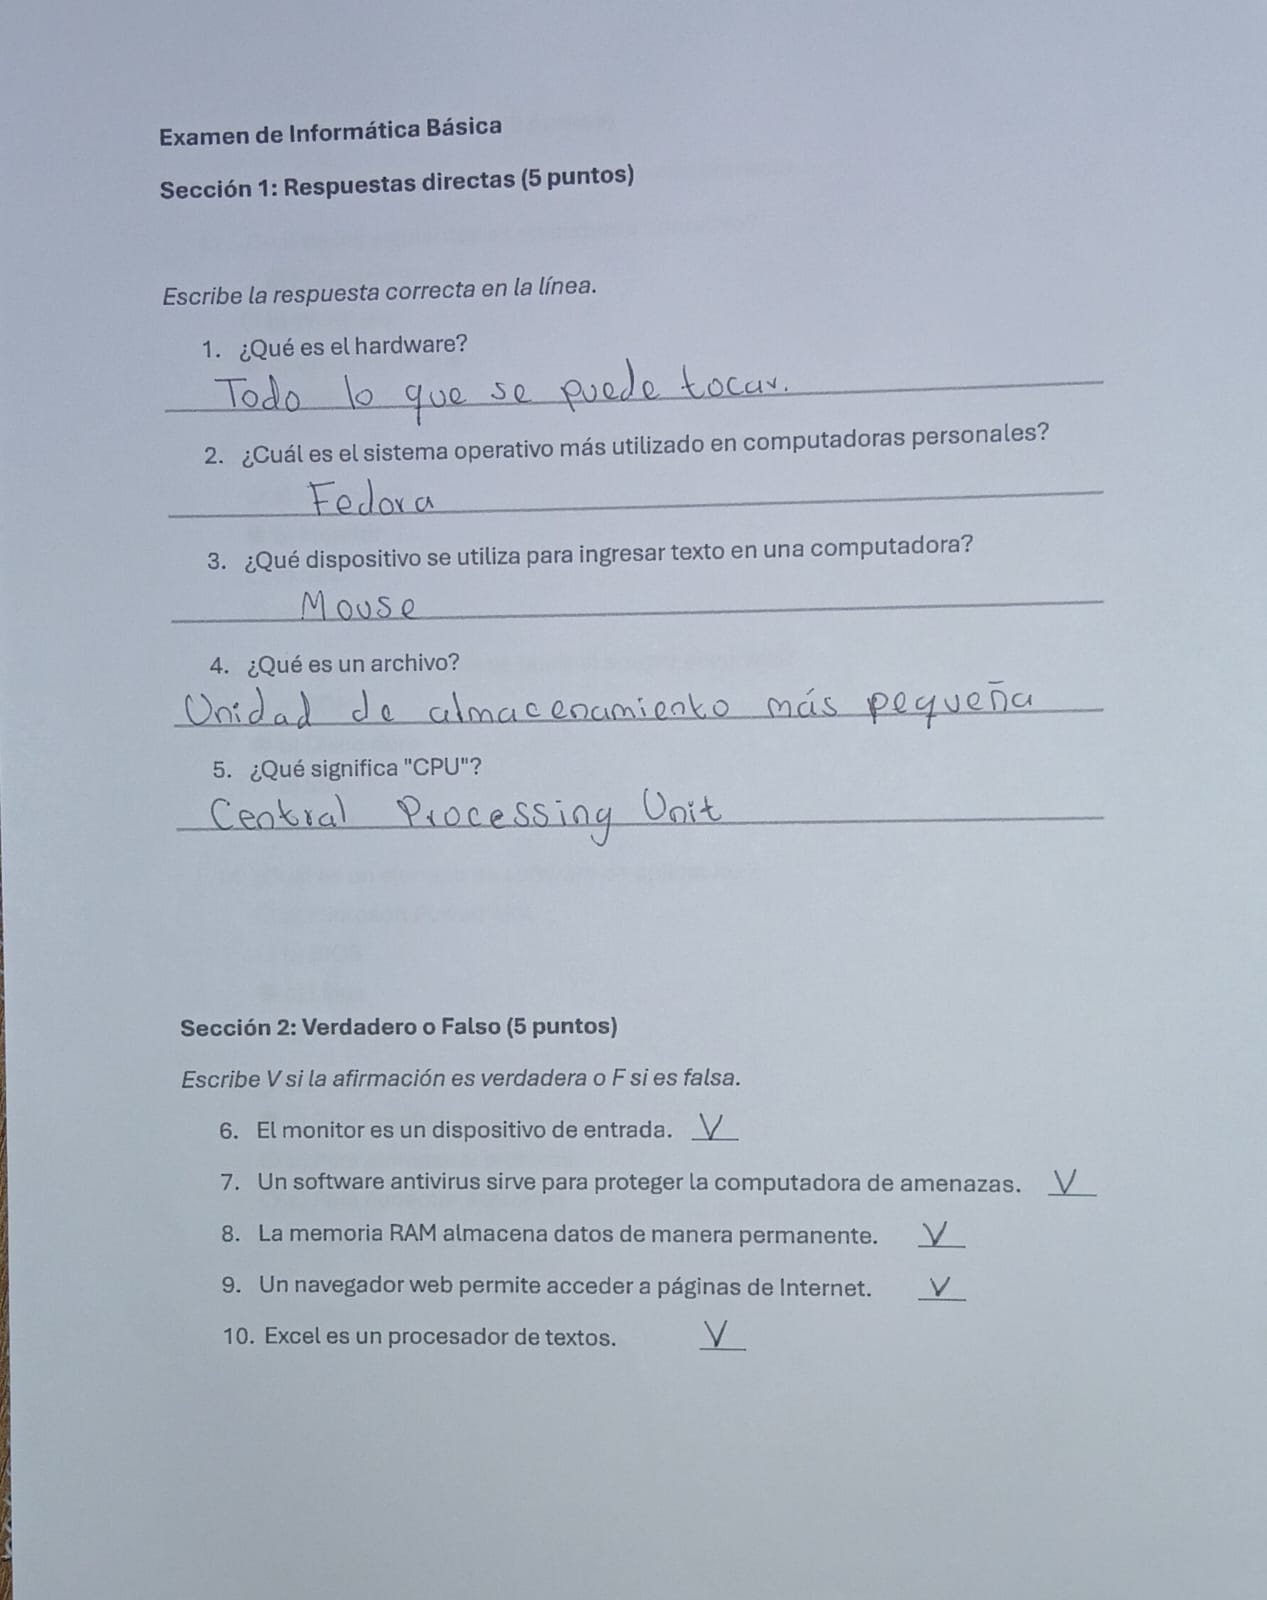 Examen de Informática Básica
Sección 1: Respuestas directas (5 puntos)
Escribe la respuesta correcta en la línea.
1. ¿Qué es el hardware?
Todo lo que se puede tocar.
2. ¿Cuál es el sistema operativo más utilizado en computadoras personales?
Fedora
3. ¿Qué dispositivo se utiliza para ingresar texto en una computadora?
Mouse
4. ¿Qué es un archivo?
Unidad de almacenamiento más pequeña
5. ¿Qué significa "CPU"?
Central Processing Unit
Sección 2: Verdadero o Falso (5 puntos)
Escribe V si la afirmación es verdadera o F si es falsa.
6. El monitor es un dispositivo de entrada. V
7. Un software antivirus sirve para proteger la computadora de amenazas. V
8. La memoria RAM almacena datos de manera permanente. V
9. Un navegador web permite acceder a páginas de Internet. V
10. Excel es un procesador de textos. V